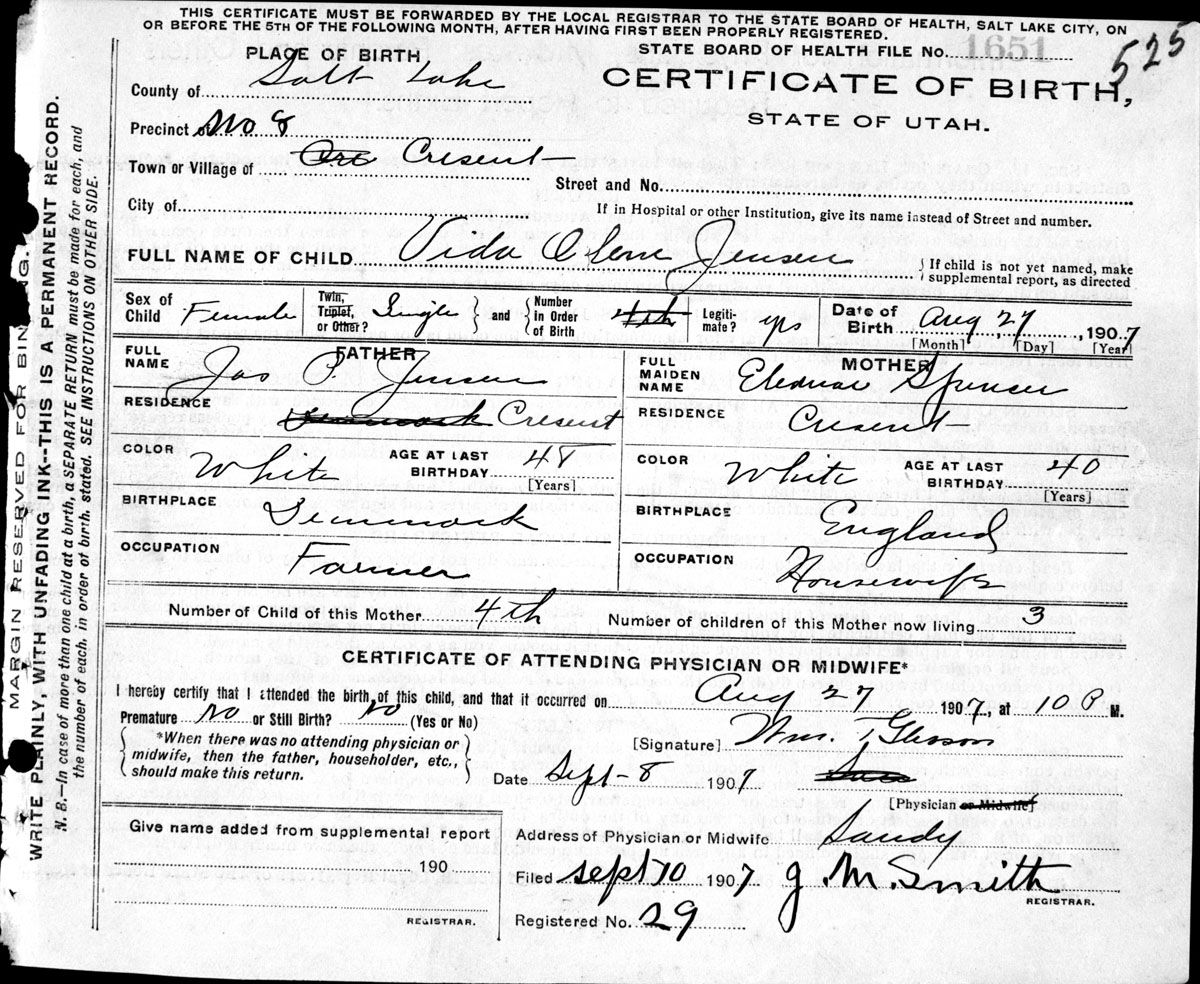 THIS CERTIFICATE MUST BE FORWARDED BY THE LOCAL REGISTRAR TO THE STATE BOARD OF HEALTH, SALT LAKE CITY, ON
OR BEFORE THE 5TH OF THE FOLLOWING MONTH, AFTER HAVING FIRST BEEN PROPERLY REGISTERED.
PLACE OF BIRTH
STATE BOARD OF HEALTH FILE No. 1651
525
County of Salt Lake
CERTIFICATE OF BIRTH,
STATE OF UTAH.
Precinct of No 8
Town or Village of Cresent
Street and No.
City of
If in Hospital or other Institution, give its name instead of Street and number.
FULL NAME OF CHILD Vida Jensen
} If child is not yet named, make supplemental report, as directed
Sex of Child Female
Twin, Triplet, or Other? Single } and { Number in Order of Birth 4th
Legiti-mate? yes
Date of Birth Aug 27, 1907
[Month] [Day] [Year]
FATHER
FULL NAME Jas P. Jensen
RESIDENCE Denmark Cresent
COLOR White AGE AT LAST BIRTHDAY 48 [Years]
BIRTHPLACE Denmark
OCCUPATION Farmer
MOTHER
FULL MAIDEN NAME Spenser
RESIDENCE Cresent
COLOR White AGE AT LAST BIRTHDAY 40 [Years]
BIRTHPLACE England
OCCUPATION Housewife
Number of Child of this Mother 4th Number of children of this Mother now living 3
CERTIFICATE OF ATTENDING PHYSICIAN OR MIDWIFE*
I hereby certify that I attended the birth of this child, and that it occurred on Aug 27 1907, at 10 P M.
Premature No or Still Birth? No (Yes or No)
{ *When there was no attending physician or midwife, then the father, householder, etc., should make this return. }
[Signature] Wm.
Date Sept 8 1907
[Physician or Midwife]
Give name added from supplemental report
190
REGISTRAR.
Address of Physician or Midwife Sandy
Filed Sept 10 1907 J. M. Smith
REGISTRAR.
Registered No. 29
MARGIN RESERVED FOR BINDING.
WRITE PLAINLY, WITH UNFADING INK--THIS IS A PERMANENT RECORD.
N. B.--In case of more than one child at a birth, a SEPARATE RETURN must be made for each, and
the number of each, in order of birth, stated. SEE INSTRUCTIONS ON OTHER SIDE.